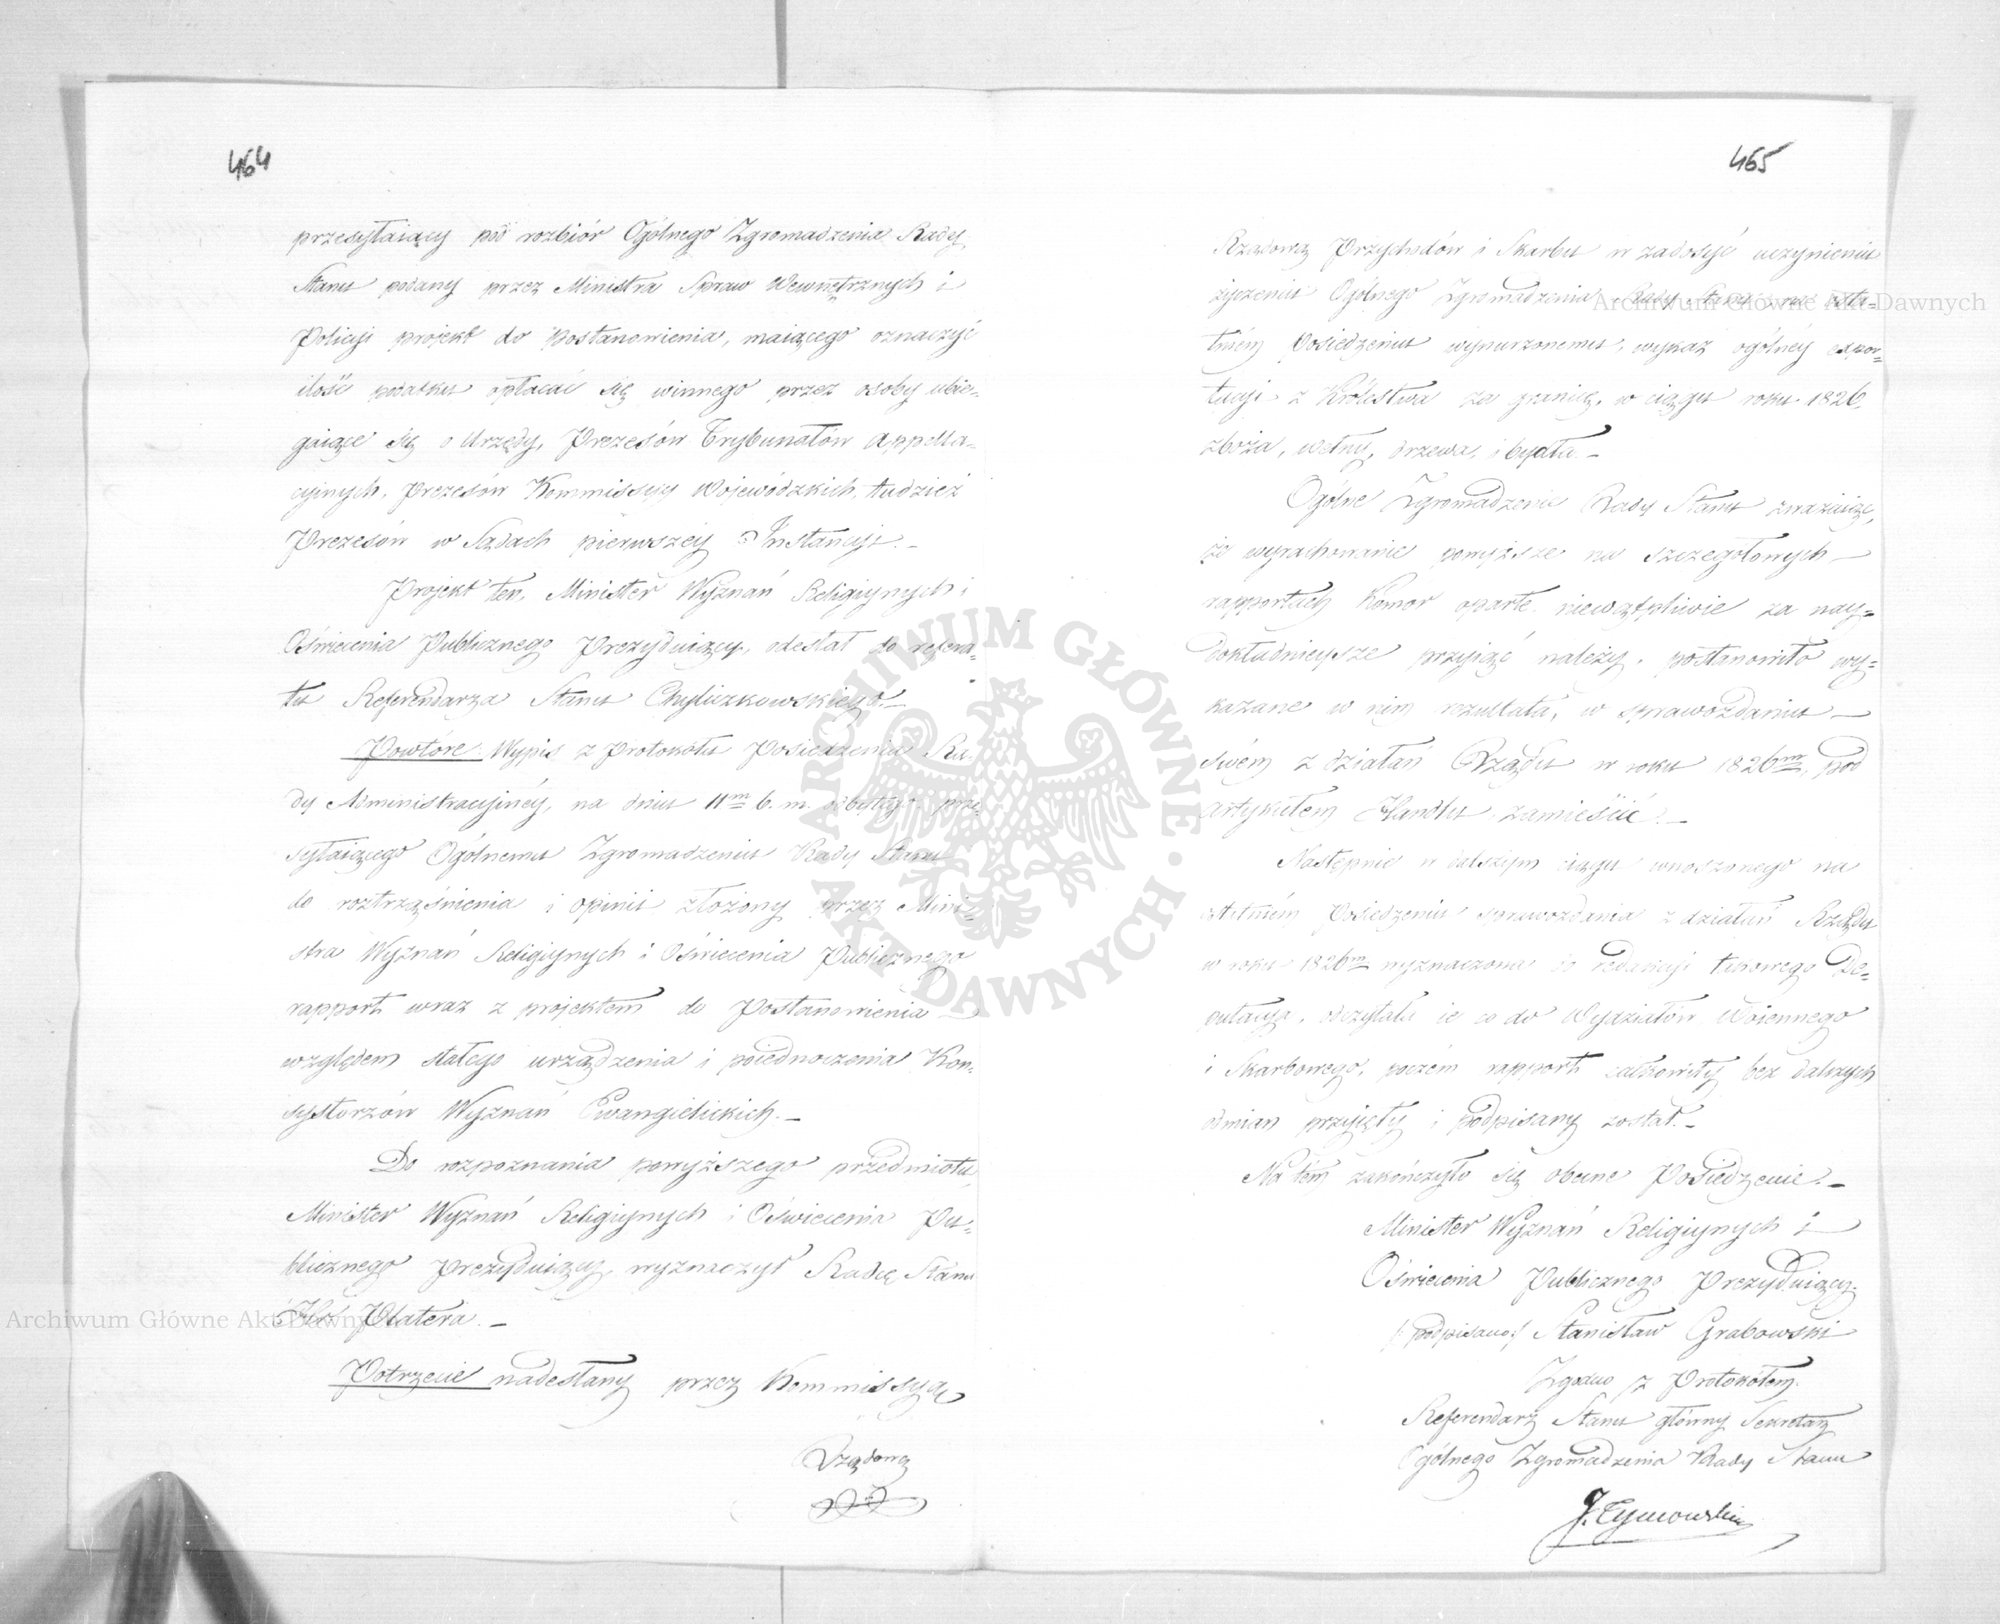 464
przesyłaiący pod rozbiór Ogólnego Zgromadzenia Rady
Stanu podany przez Ministra Spraw Wewnętrznych i
Policyi projekt do postanowienia, maiącego oznaczyć
ilość podatku opłacać się winnego przez osoby ubie-
gaiące się o Urzędy, Prezesów Trybunałów Appella-
cyinych, Prezesów Kommissyy Wojewódzkich, tudzież
Prezesów w Sądach pierwszey Instancyi.-
Projekt ten, Minister Wyznań Religiynych i
Oświecenia Publicznego Prezyduiący, odesłał do refera-
tu Referendarza Stanu Chyliczkowskiego.-
Powtóre: Wypis z Protokółu Posiedzenia Ra-
dy Administracyinéy, na dniu 11m b. m. odbytego prze-
syłaiącego Ogólnemu Zgromadzeniu Rady Stanu
do roztrząśnienia i opinii złożony przez Mini-
stra Wyznań Religiynych i Oświecenia Publicznego
rapport wraz z projektem do Postanowienia
względem stałego urządzenia i poiednoczenia Kon-
systorzów Wyznań Ewangielickich.-
Do rozpoznania powyższego przedmiotu,
Minister Wyznań Religiynych i Oświecenia Pu-
blicznego Prezyduiący, wyznaczył Radcę Stanu
Hr. Platera.-
Potrzecie nadesłany przez Kommissyą
Rządową
465
Rządową Przychodów i Skarbu w zadosyć uczynieniu
życzeniu Ogólnego Zgromadzenia Rady Stanu na osta-
tniém Posiedzeniu wynurzonemu, wykaz ogólnéy expor-
tacyi z Królestwa za granicę, w ciągu roku 1826,
zboża, wełny, drzewa, i bydła.-
Ogólne Zgromadzenie Rady Stanu zważaiąc,
że wyrachowanie powyższe na szczegółowych
rapportach Komor oparte, niewątpliwie za nay-
dokładnieysze przyiąć należy, postanowiło wy-
kazane w nim rezultata, w sprawozdaniu
swém z działań Rządu w roku 1826m, pod
artykułem Handlu zamieścić.-
Następnie w dalszym ciągu wnoszonego na
ostatniém Posiedzeniu sprawozdania z działań Rządu
w roku 1826m wyznaczona do redakcyi takowego De-
putacya, odczytała ie co do Wydziałów Woiennego
i Skarbowego, poczém rapport całkowity bez dalszych
odmian przyięty i podpisany został.-
Na tém zakończyło się obecne Posiedzenie.-
Minister Wyznań Religiynych i
Oświecenia Publicznego Prezyduiący.
/: podpisano :/ Stanisław Grabowski
Zgodno z Protokółem.
Referendarz Stanu główny Sekretarz
Ogólnego Zgromadzenia Rady Stanu
J. Tymowski
Archiwum Główne Akt Dawnych
Archiwum Główne Akt Dawnych
ARCHIWUM GŁÓWNE · AKT DAWNYCH ·